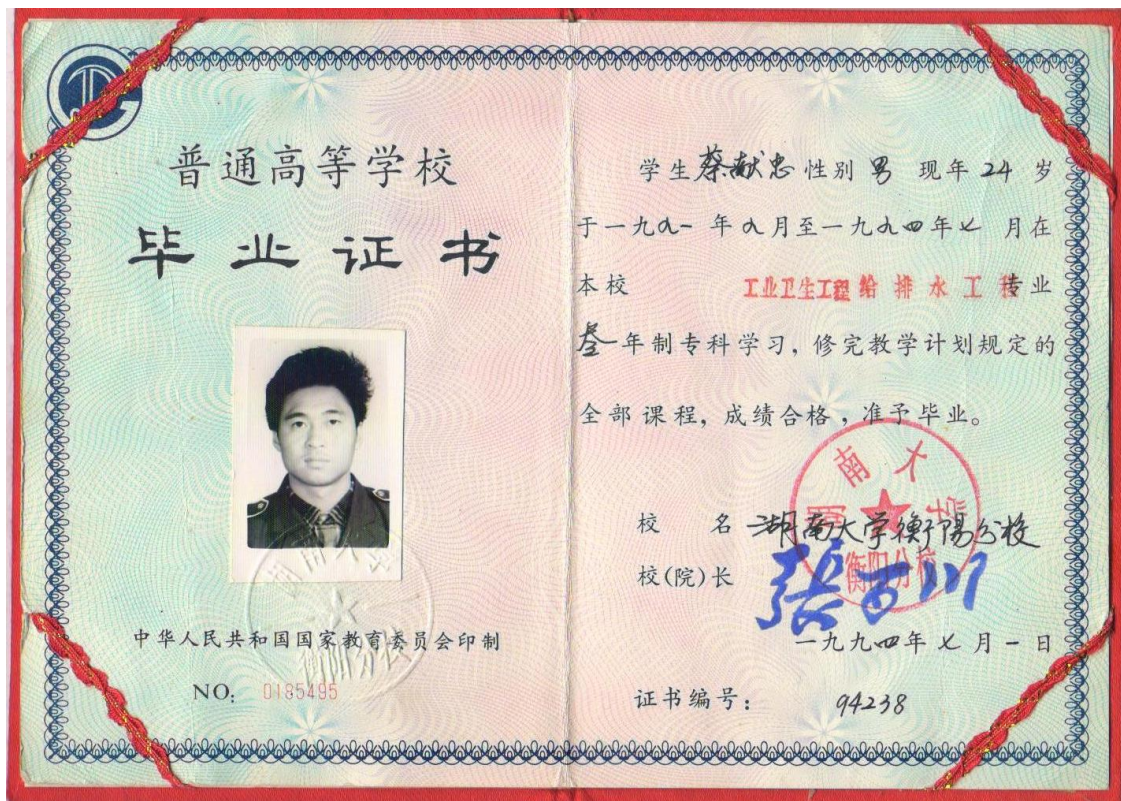 普通高等学校
毕业证书
中华人民共和国国家教育委员会印制
NO: 0185495
学生蔡献忠性别男 现年24岁
于一九九一年九月至一九九四年七月在
本校 工业卫生工程给排水工程专业
叁年制专科学习，修完教学计划规定的
全部课程，成绩合格，准予毕业。
校 名 湖南大学衡陽分校
校(院)长 張
一九九四年七月一日
证书编号： 94238
湖南大学
衡阳分校